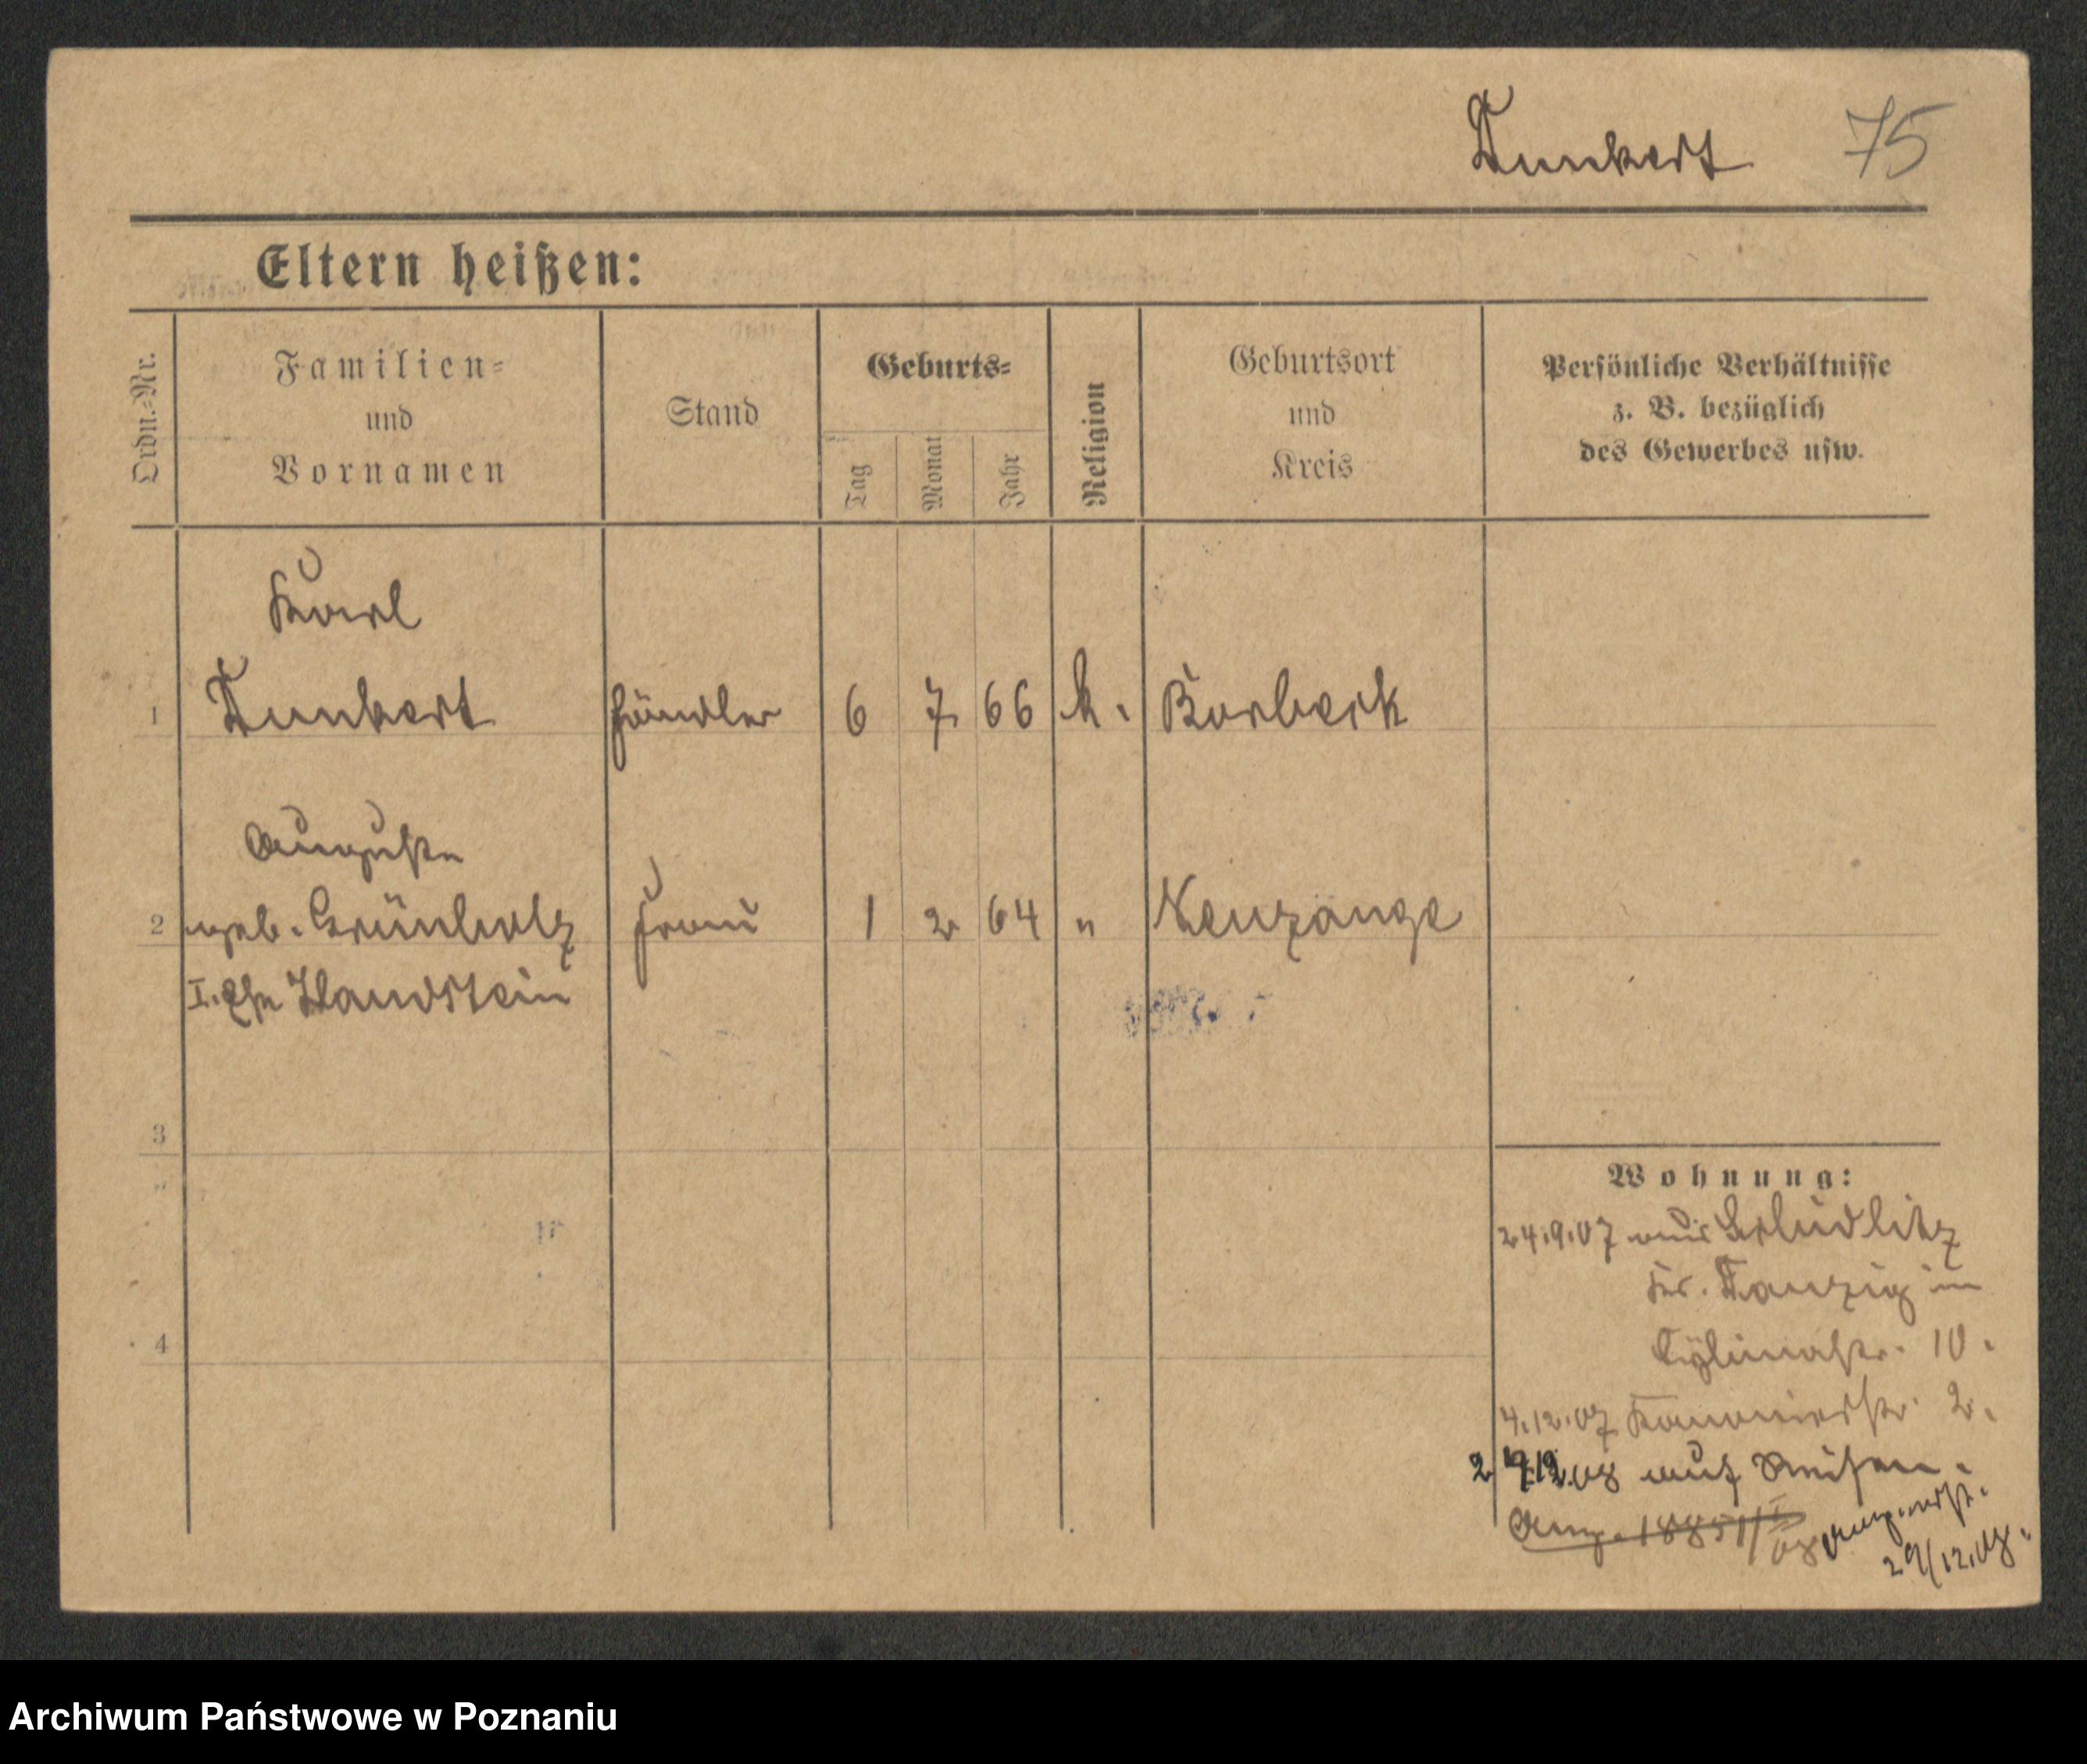 Dunkert 75
Eltern heißen:
Ordn.-Nr.
Familien-
und
Vornamen
Stand
Geburts-
Tag
Monat
Jahr
Religion
Geburtsort
und
Kreis
Persönliche Verhältnisse
z. B. bezüglich
des Gewerbes usw.
Karl
1 Dunkert Händler 6 7 66 k. Borbeck
Auguste
2 geb. Grünholz Frau 1 2 64 " Neuzange
I. Ehe Handstein
3
4
Wohnung:
24.9.07 aus
Kr. Danzig in
10.
4.12.07 Kanonierstr. 2.
08 auf Reisen.
Ang. 1885
29/12.08.
Archiwum Państwowe w Poznaniu